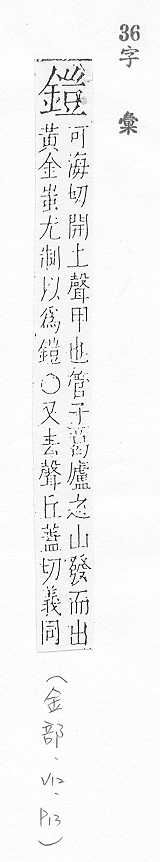 36
字彙
鎧
可海切開上聲甲也管子葛廬之山發而出
黃金蚩尤制以為鎧○又去聲丘蓋切義同
(金部.V12.P13)